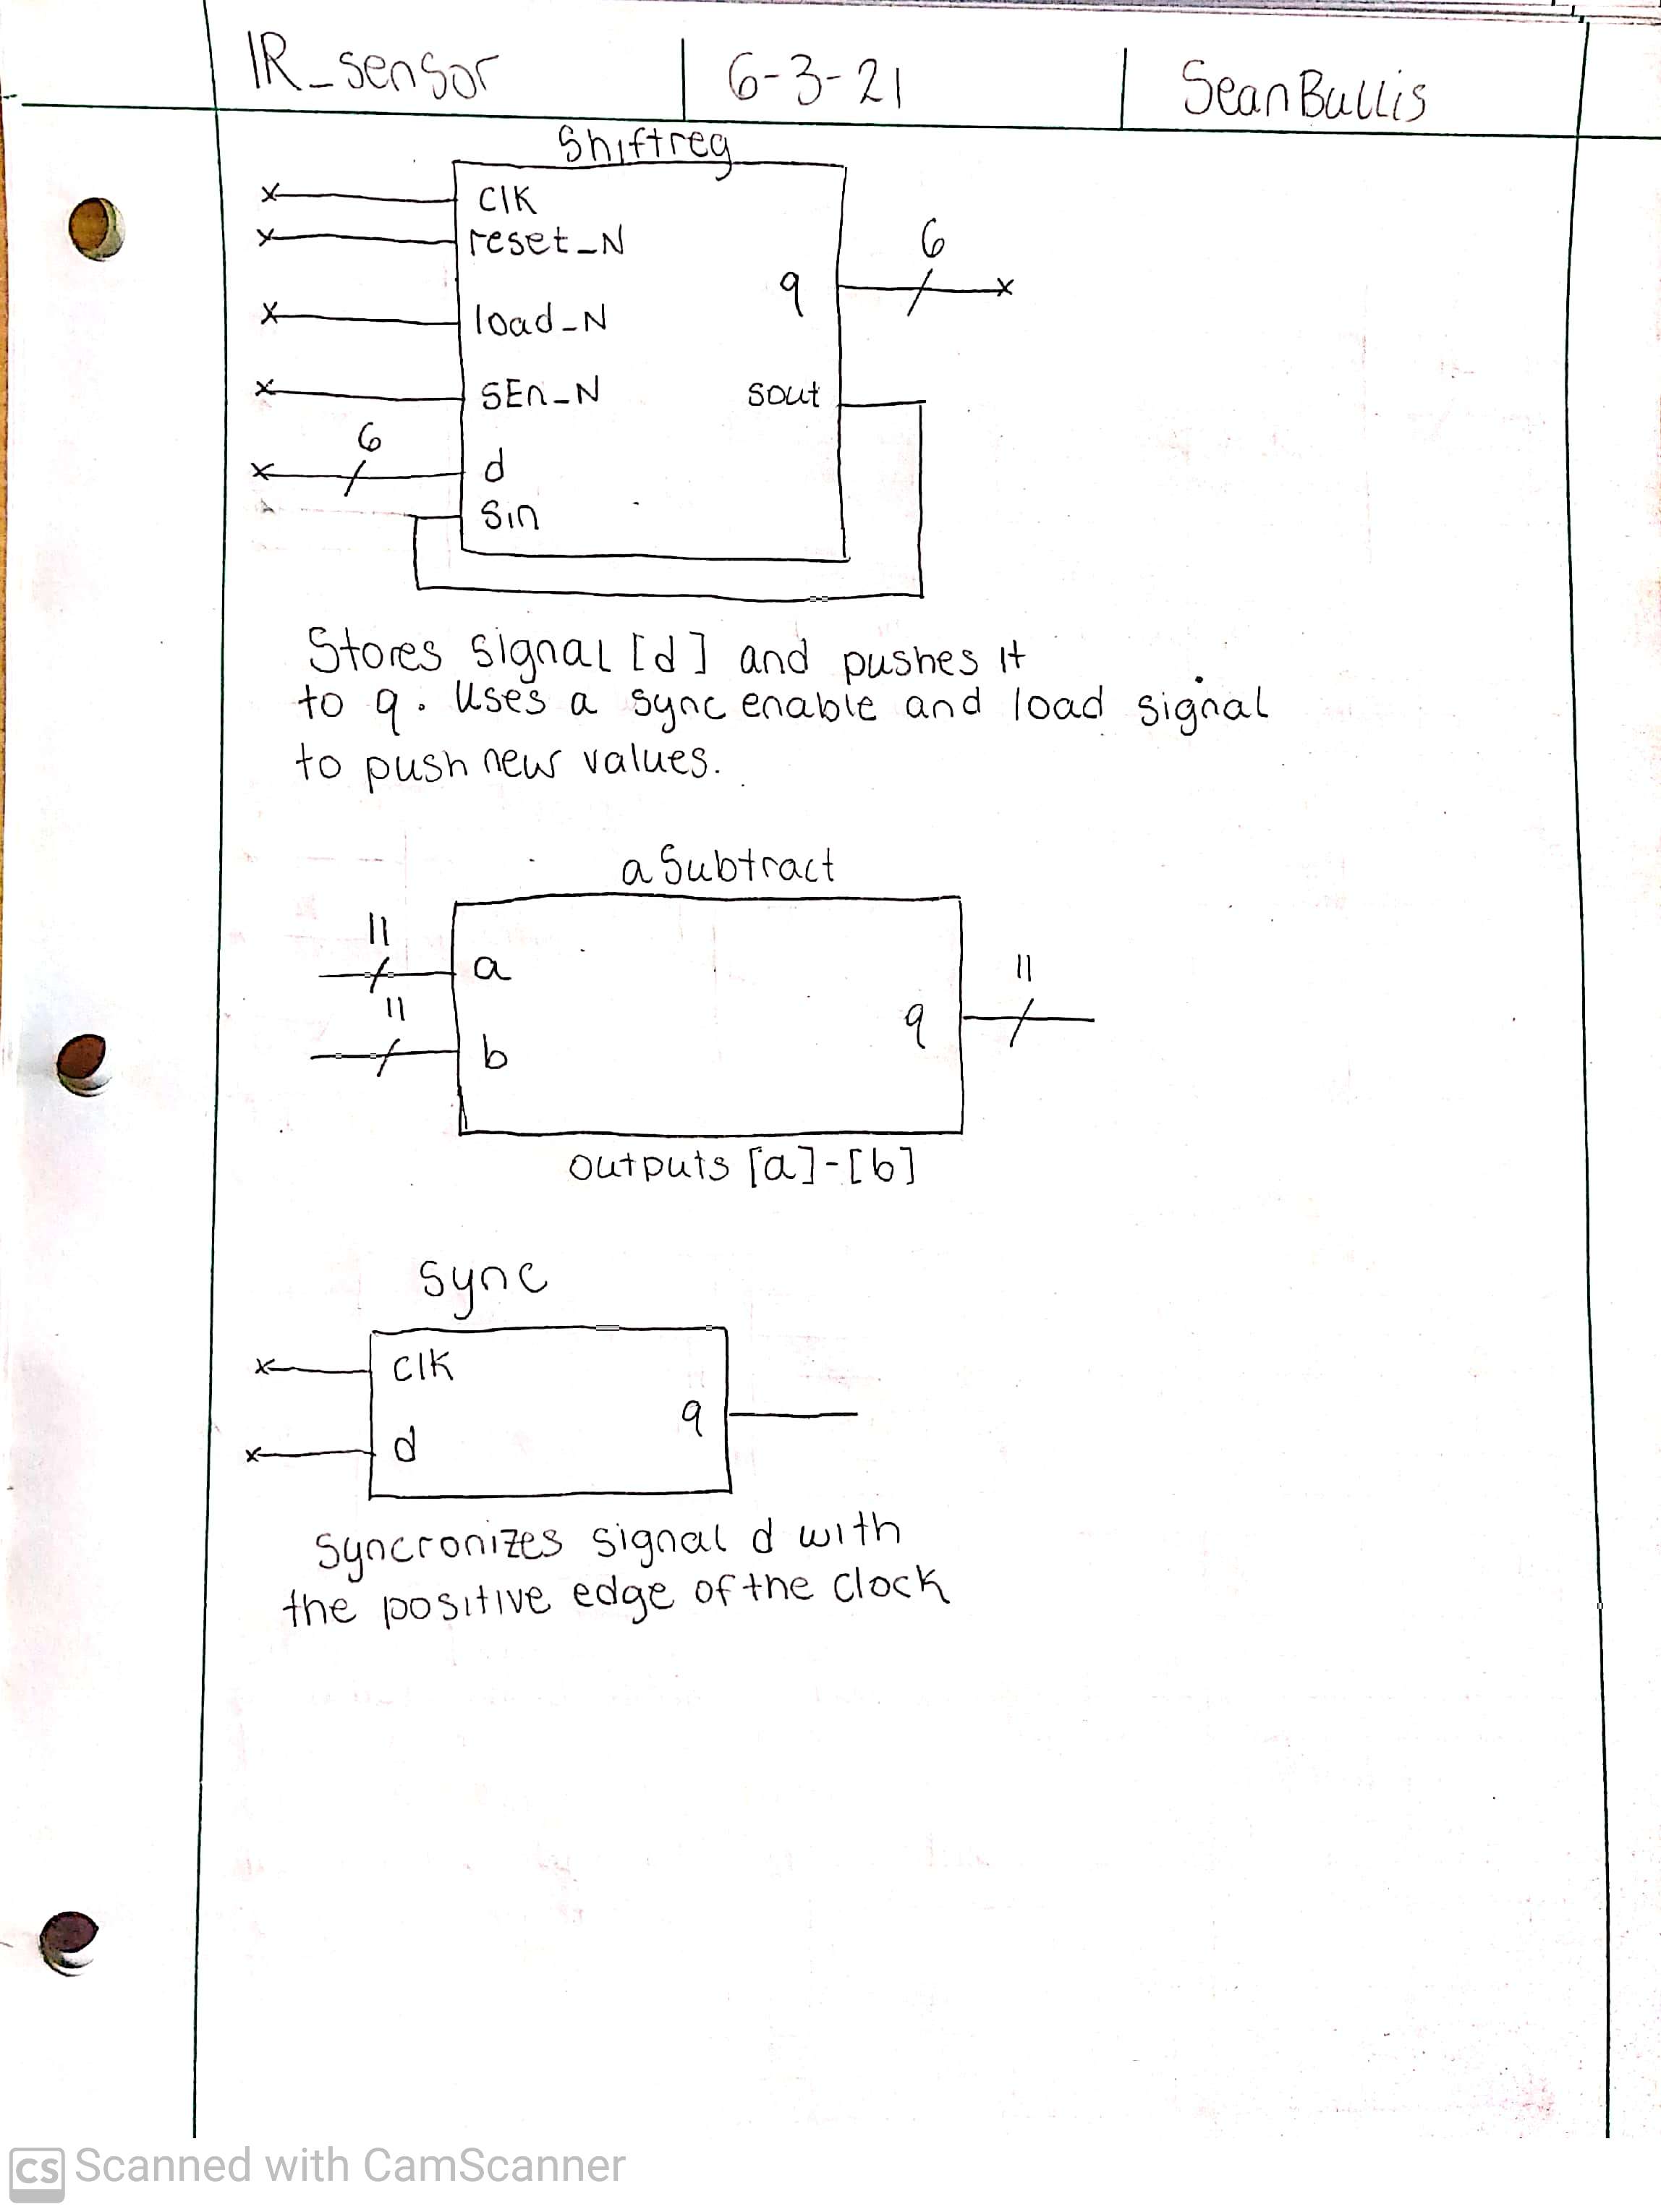 IR_sensor | 6-3-21 | Sean Bullis
Shiftreg
clk
reset_N
6
q
load_N
SEn_N
sout
6
d
Sin
Stores signal [d] and pushes it
to q. Uses a sync enable and load signal
to push new values.
aSubtract
11
a
11
11
q
b
outputs [a]-[b]
Sync
clk
q
d
Syncronizes signal d with
the positive edge of the clock
CS Scanned with CamScanner